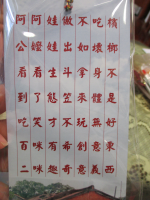 檳榔不是好東西
吃壞身體無意義
不如拿來玩創意
做出斗笠不希奇
娃娃生才有趣
阿嬤看了笑咪咪
阿公看到吃百二